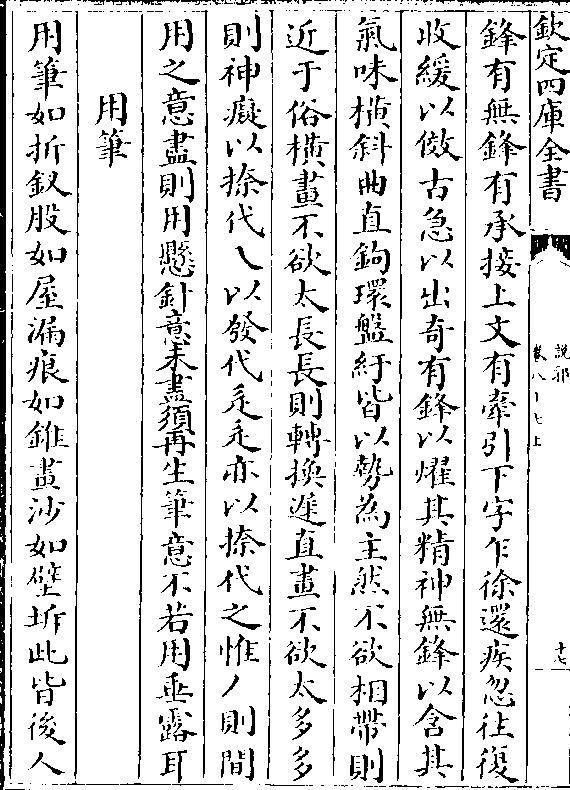 欽定四庫全書
說郛
卷八十七上
十七
鋒有無鋒有承接上文有牽引下字乍徐還疾忽往復
收緩以倣古急以出奇有鋒以燿其精神無鋒以含其
氣味橫斜曲直鉤環盤紆皆以勢為主然不欲相帶則
近于俗橫畫不欲太長長則轉換遲直畫不欲太多多
則神癡以捺代乀以發代辵辵亦以捺代之惟丿則間
用之意盡則用懸針意未盡須再生筆意不若用垂露耳
用筆
用筆如折釵股如屋漏痕如錐畫沙如壁坼此皆後人